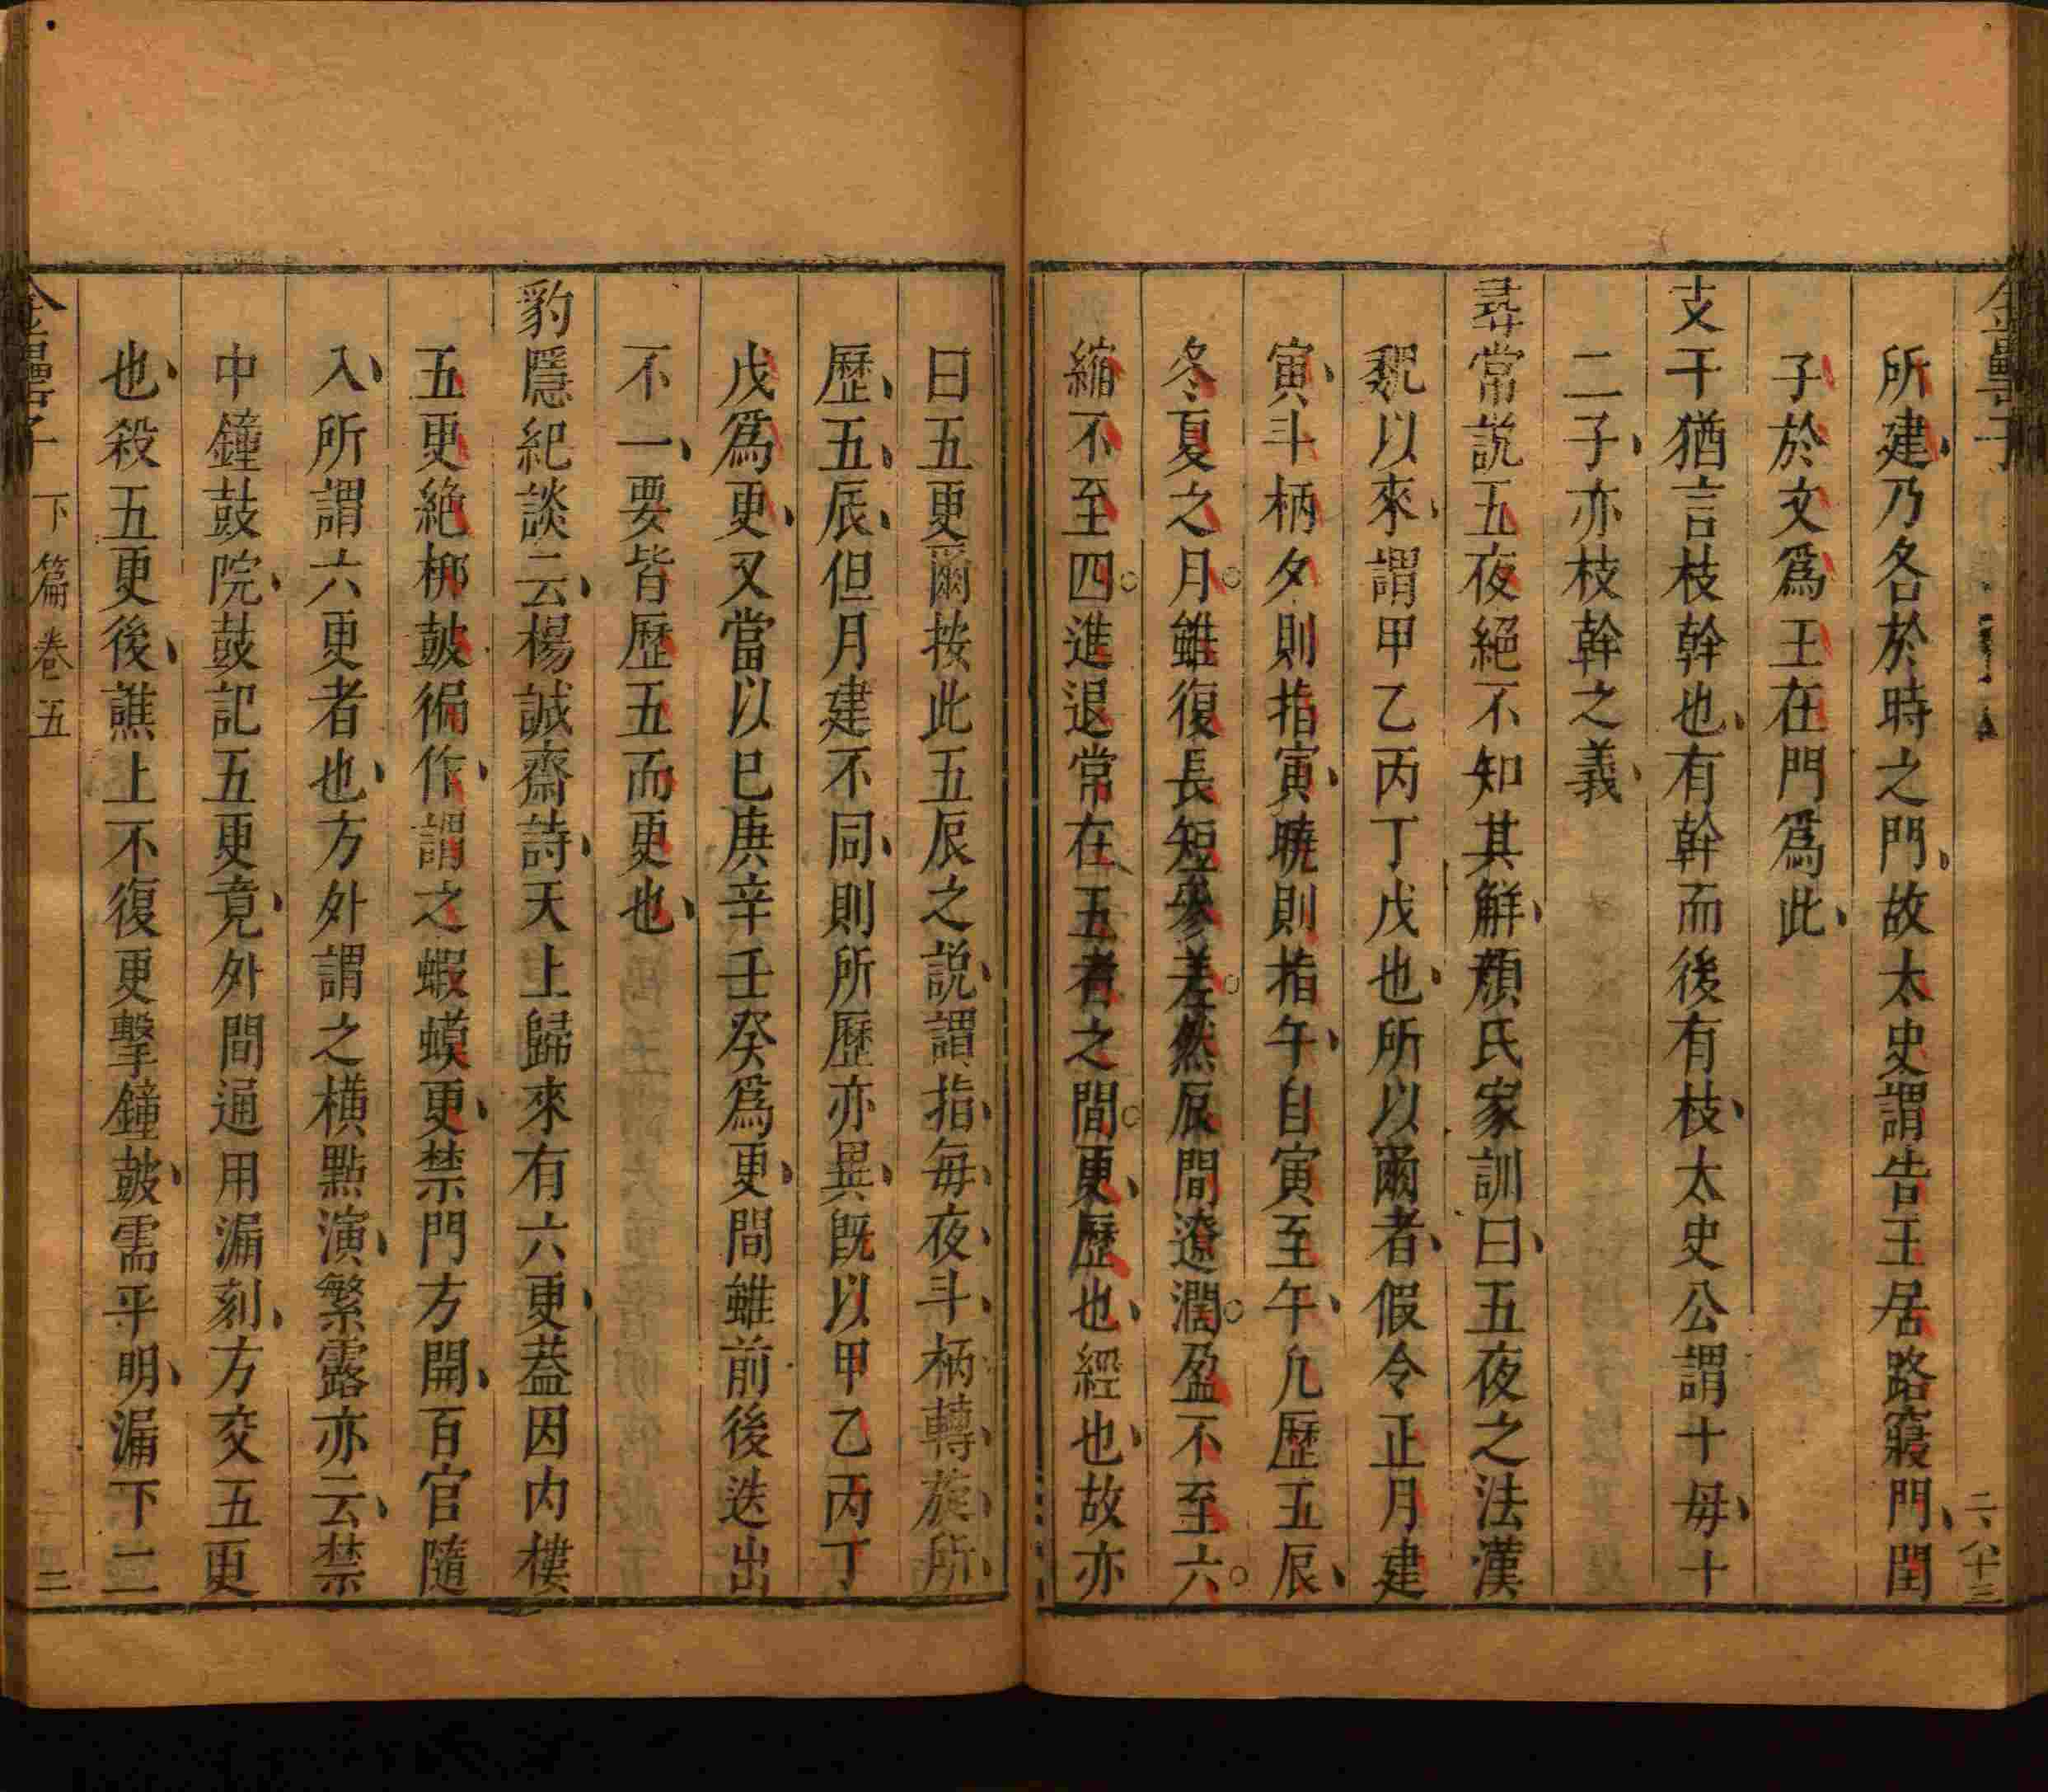 金罍子
二八十三
所建乃各於時之門故太史謂告王居路寢門閏
子於文爲王在門爲此
支干猶言枝幹也有幹而後有枝太史公謂十母十
二子亦枝幹之義
尋常説五夜絕不知其觧顏氏家訓曰五夜之法漢
魏以來謂甲乙丙丁戊也所以爾者假令正月建
寅斗柄夕則指寅曉則指午自寅至午凡歷五辰
冬夏之月雖復長短參差然辰間遼濶盈不至六
縮不至四進退常在五者之間更歷也經也故亦
曰五更爾按此五辰之説謂指每夜斗柄轉旋所
歷五辰但月建不同則所歷亦異旣以甲乙丙丁
戊爲更又當以巳庚辛壬癸爲更間雖前後迭出
不一要皆歷五而更也
豹隱紀談云楊誠齋詩天上歸來有六更葢因内樓
五更絕梆鼓徧作謂之蝦蟆更禁門方開百官隨
入所謂六更者也方外謂之橫點演繁露亦云禁
中鐘鼓院鼓記五更竟外間通用漏刻方交五更
也殺五更後譙上不復更擊鐘鼓需平明漏下二
金罍子
下篇卷五
二